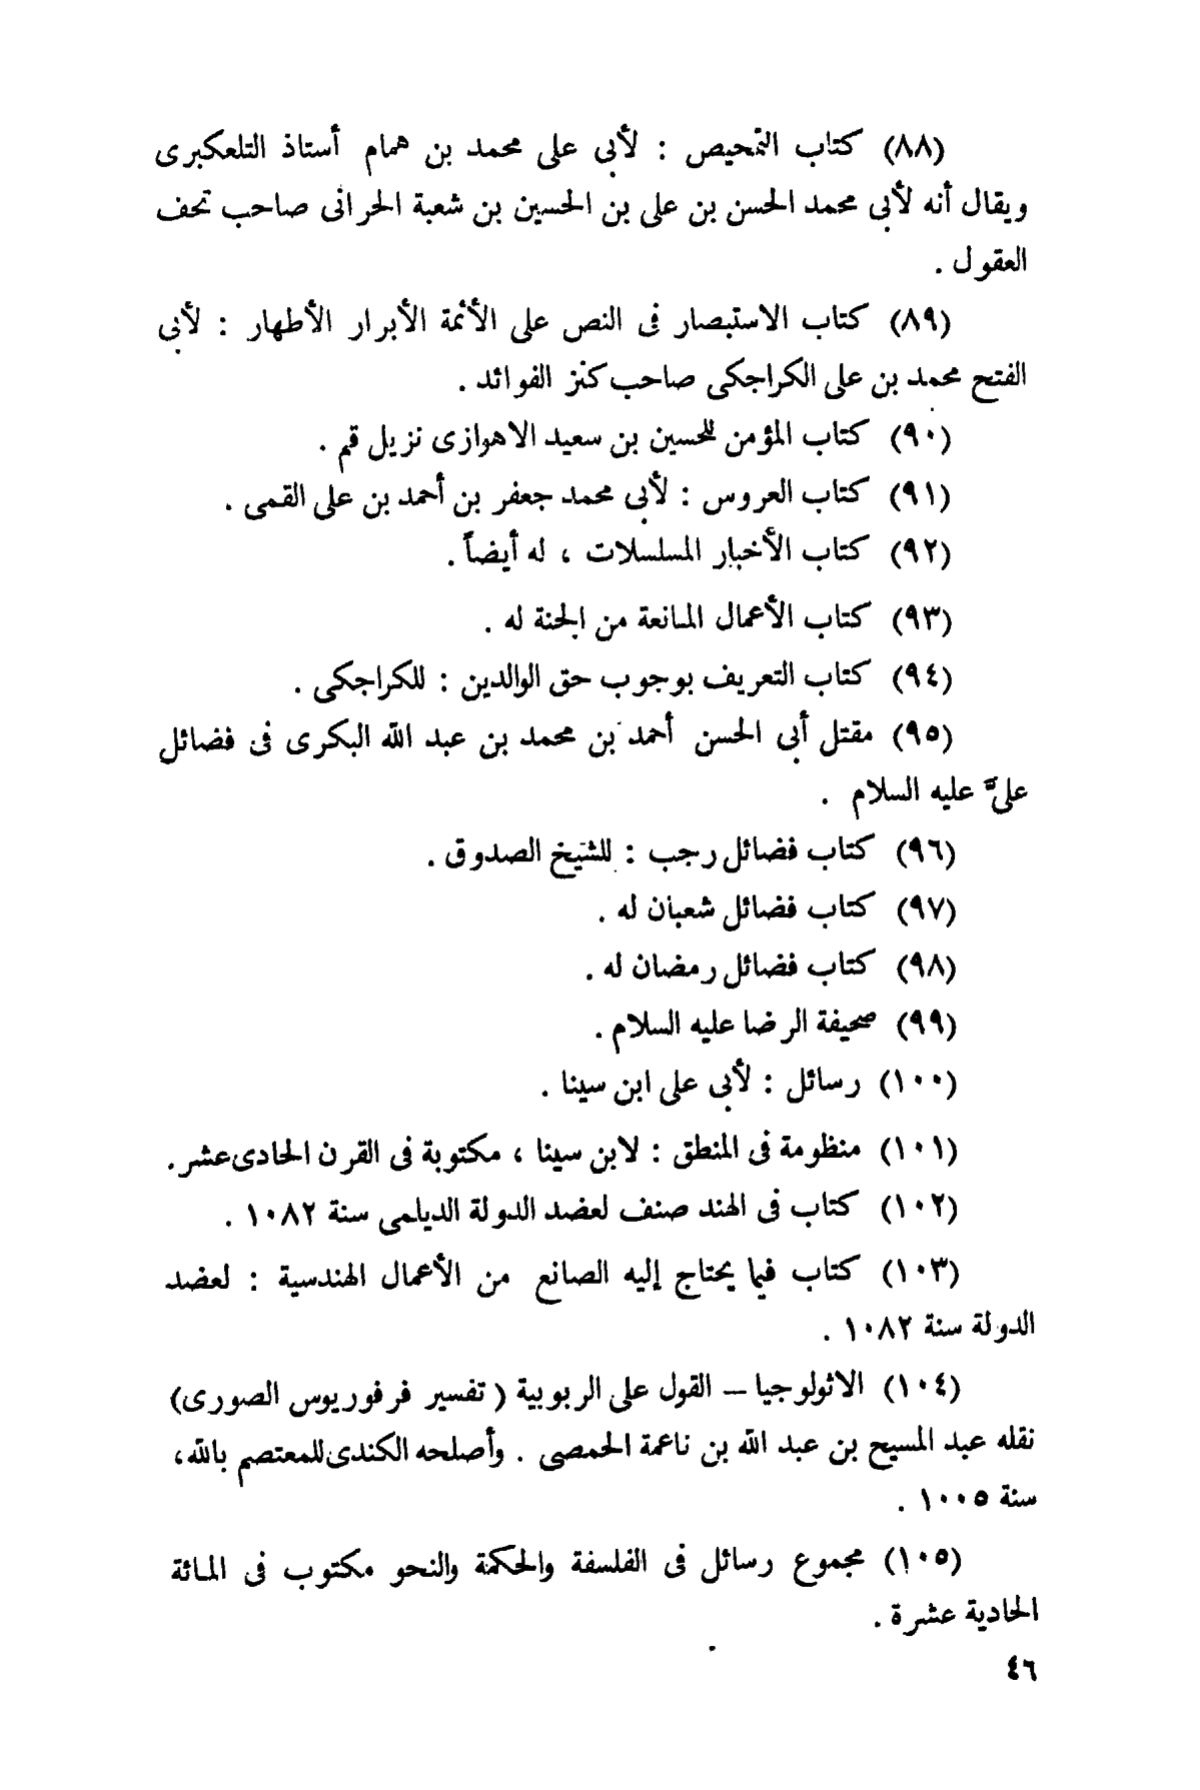 (٨٨) كتاب التمحيص : لأبى على محمد بن همام أستاذ التلعكبرى
ويقال أنه لأبى محمد الحسن بن على بن الحسين بن شعبة الحرانى صاحب تحف
العقول .
(٨٩) كتاب الاستبصار فى النص على الأئمة الأبرار الأطهار : لأبى
الفتح محمد بن على الكراجكى صاحب كنز الفوائد .
(٩٠) كتاب المؤمن للحسين بن سعيد الاهوازى نزيل قم .
(٩١) كتاب العروس : لأبى محمد جعفر بن أحمد بن على القمى .
(٩٢) كتاب الأخبار المسلسلات ، له أيضاً .
(٩٣) كتاب الأعمال المانعة من الجنة له .
(٩٤) كتاب التعريف بوجوب حق الوالدين : للكراجكى .
(٩٥) مقتل أبى الحسن أحمد بن محمد بن عبد الله البكرى فى فضائل
علىّ عليه السلام .
(٩٦) كتاب فضائل رجب : للشيخ الصدوق .
(٩٧) كتاب فضائل شعبان له .
(٩٨) كتاب فضائل رمضان له .
(٩٩) صحيفة الرضا عليه السلام .
(١٠٠) رسائل : لأبى على ابن سينا .
(١٠١) منظومة فى المنطق : لابن سينا ، مكتوبة فى القرن الحادى عشر .
(١٠٢) كتاب فى الهند صنف لعضد الدولة الديلمى سنة ١٠٨٢ .
(١٠٣) كتاب فيما يحتاج إليه الصانع من الأعمال الهندسية : لعضد
الدولة سنة ١٠٨٢ .
(١٠٤) الاثولوجيا – القول على الربوبية ( تفسير فرفوريوس الصورى)
نقله عبد المسيح بن عبد الله بن ناعمة الحمصى . وأصلحه الكندى للمعتصم بالله ،
سنة ١٠٠٥ .
(١٠٥) مجموع رسائل فى الفلسفة والحكمة والنحو مكتوب فى المائة
الحادية عشرة .
٤٦